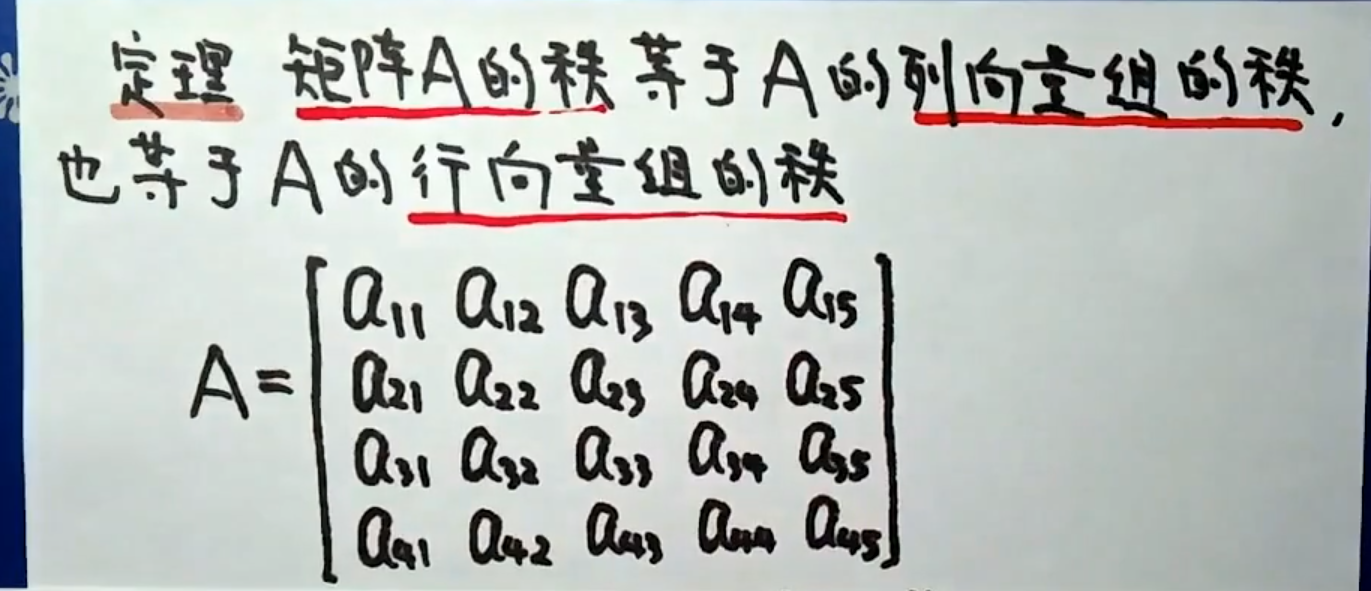 定理 矩阵A的秩等于A的列向量组的秩,
也等于A的行向量组的秩
a11 a12 a13 a14 a15
a21 a22 a23 a24 a25
A=
a31 a32 a33 a34 a35
a41 a42 a43 a44 a45